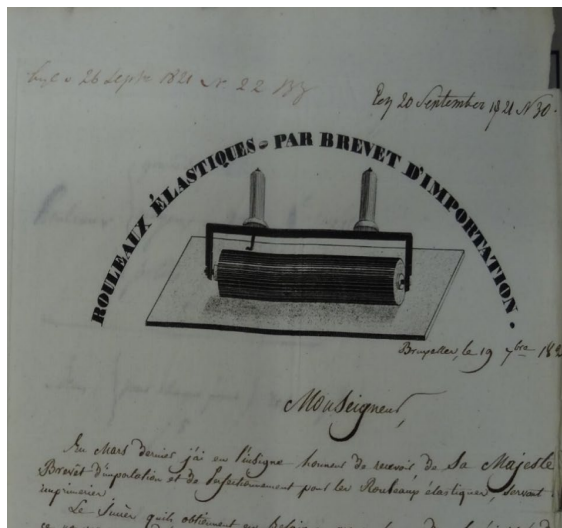 26 Septr 1821 N 22
20 September 1821 N 30.
ROULEAUX ÉLASTIQUES PAR BREVET D'IMPORTATION.
Bruxelles, le 19 7bre 182
Monseigneur,
En Mars dernier j'ai eu l'insigne honneur de recevoir de Sa Majesté
Brevet d'importation et de perfectionnement pour les Rouleaux élastiques, servant
imprimerie.
Le Succès qu'ils obtiennent en